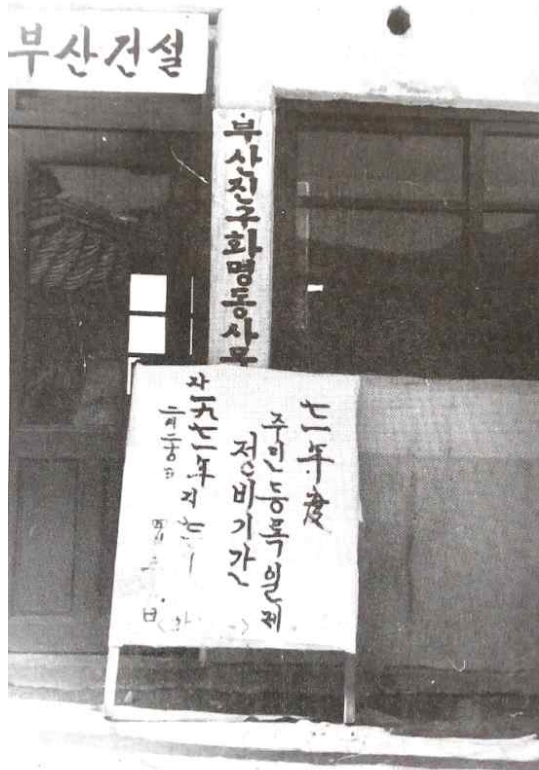 부산건설
부산진구화명동사무
七一年度
주민등록일제
정비기간
자一九七一年